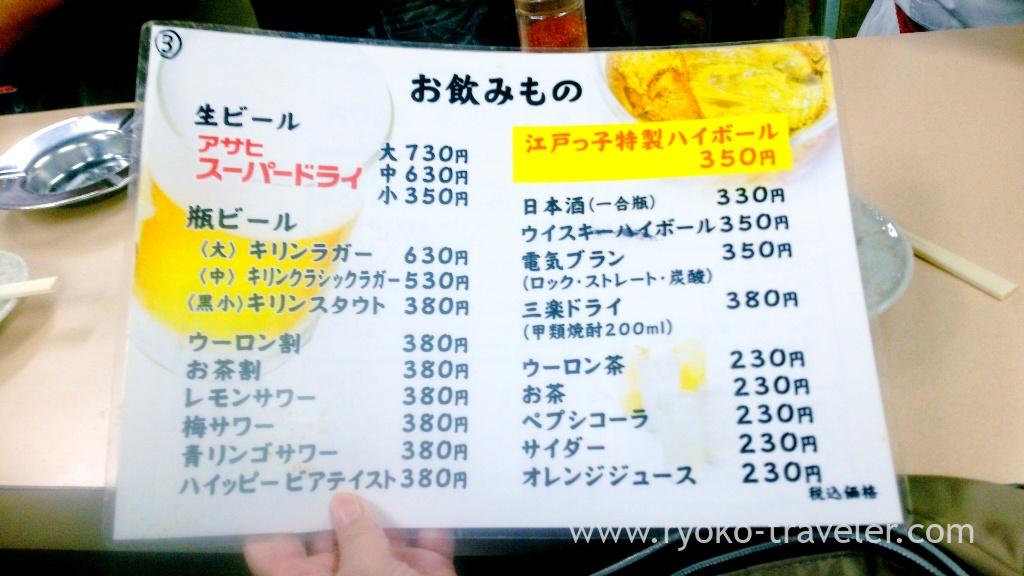 ③
お飲みもの
生ビール
アサヒ
スーパードライ
大 730円
中 630円
小 350円
瓶ビール
〈大〉キリンラガー 630円
〈中〉キリンクラシックラガー 530円
〈黒小〉キリンスタウト 380円
ウーロン割 380円
お茶割 380円
レモンサワー 380円
梅サワー 380円
青リンゴサワー 380円
ハイッピー ビアテイスト 380円
江戸っ子特製ハイボール
350円
日本酒(一合瓶) 330円
ウイスキーハイボール 350円
電気ブラン 350円
(ロック・ストレート・炭酸)
三楽ドライ 380円
(甲類焼酎200ml)
ウーロン茶 230円
お茶 230円
ペプシコーラ 230円
サイダー 230円
オレンジジュース 230円
税込価格
www.ryoko-traveler.com